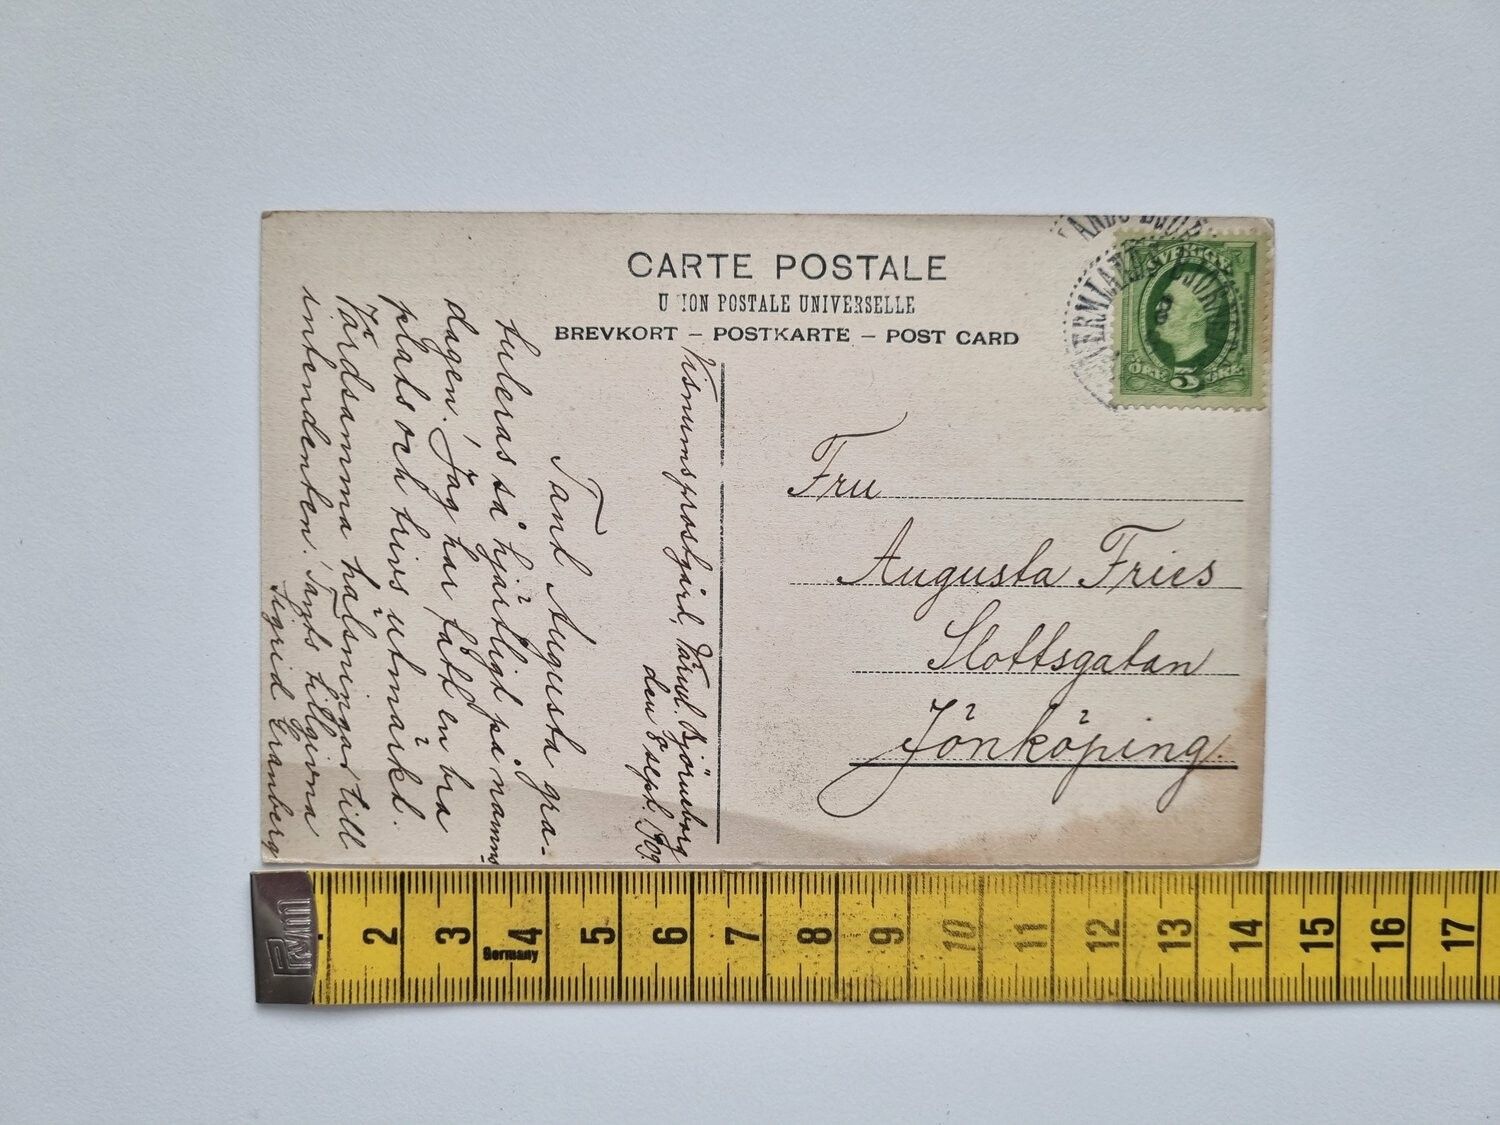 CARTE POSTALE
U ION POSTALE UNIVERSELLE
BREVKORT – POSTKARTE – POST CARD
SVERIGE
ÖRE 5 ÖRE
VERMLANDS BJÖR
Fru
Augusta Fries
Slottsgatan
Jönköping.
Visnumsprostgård, Värml. Björneborg
den 8 sept. 1909.
Tant Augusta gra-
tuleras så hjärtligt på namns-
dagen! Jag har fått en bra
plats och trivs utmärkt.
Vördsamma hälsningar till
intendenten. Tants tillgivna
Sigrid Granberg
Prym
Germany
1 2 3 4 5 6 7 8 9 10 11 12 13 14 15 16 17